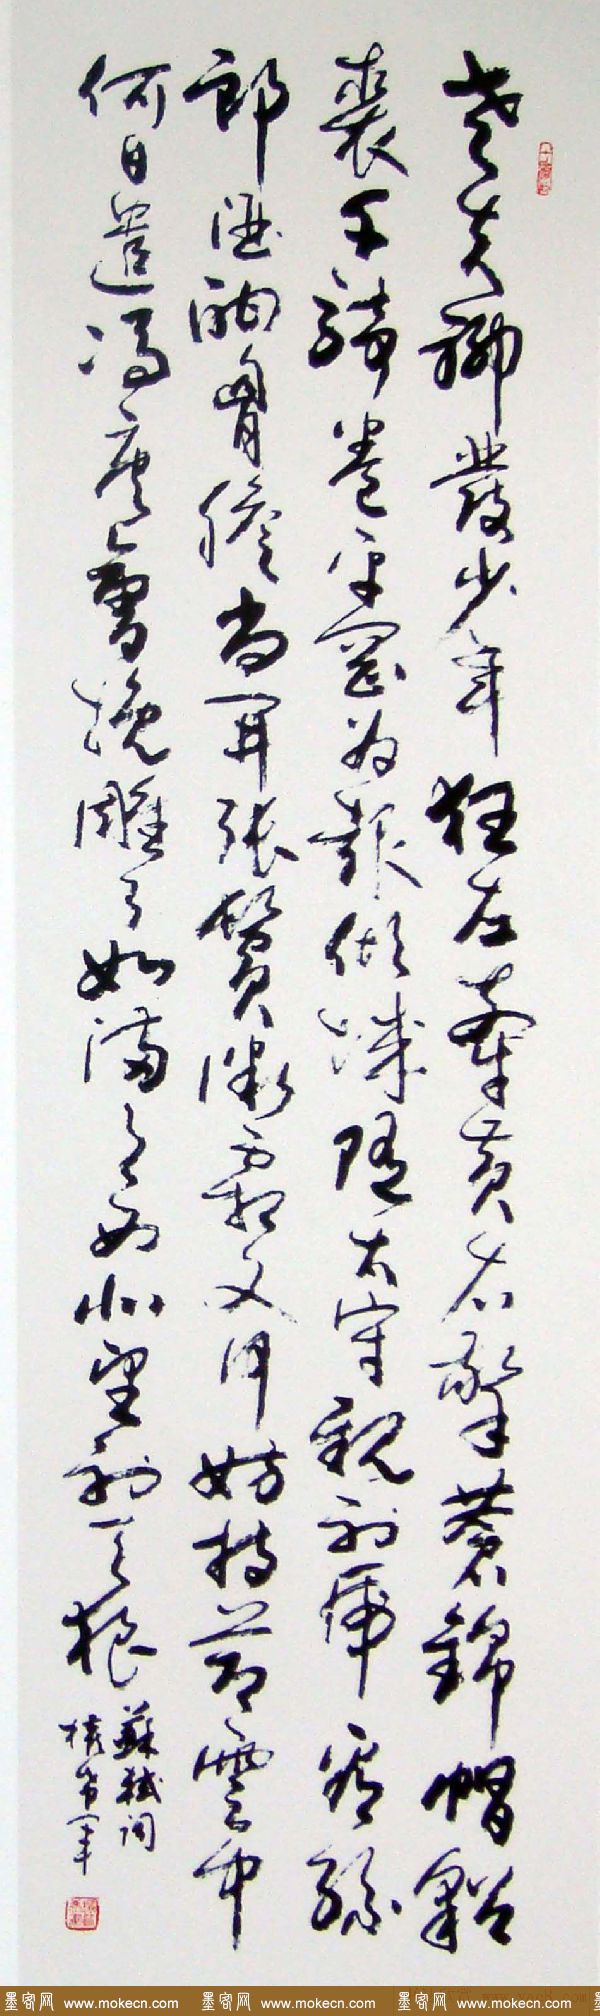 老夫聊發少年狂左牽黃右擎蒼錦帽貂
裘千騎卷平岡為報傾城隨太守親射虎看孫
郎酒酣胸膽尚開張鬢微霜又何妨持節雲中
何日遣馮唐會挽雕弓如滿月西北望射天狼
蘇軾詞
墨客网 www.mokecn.com 墨客网 www.mokecn.com 墨客网 www.mokecn.com